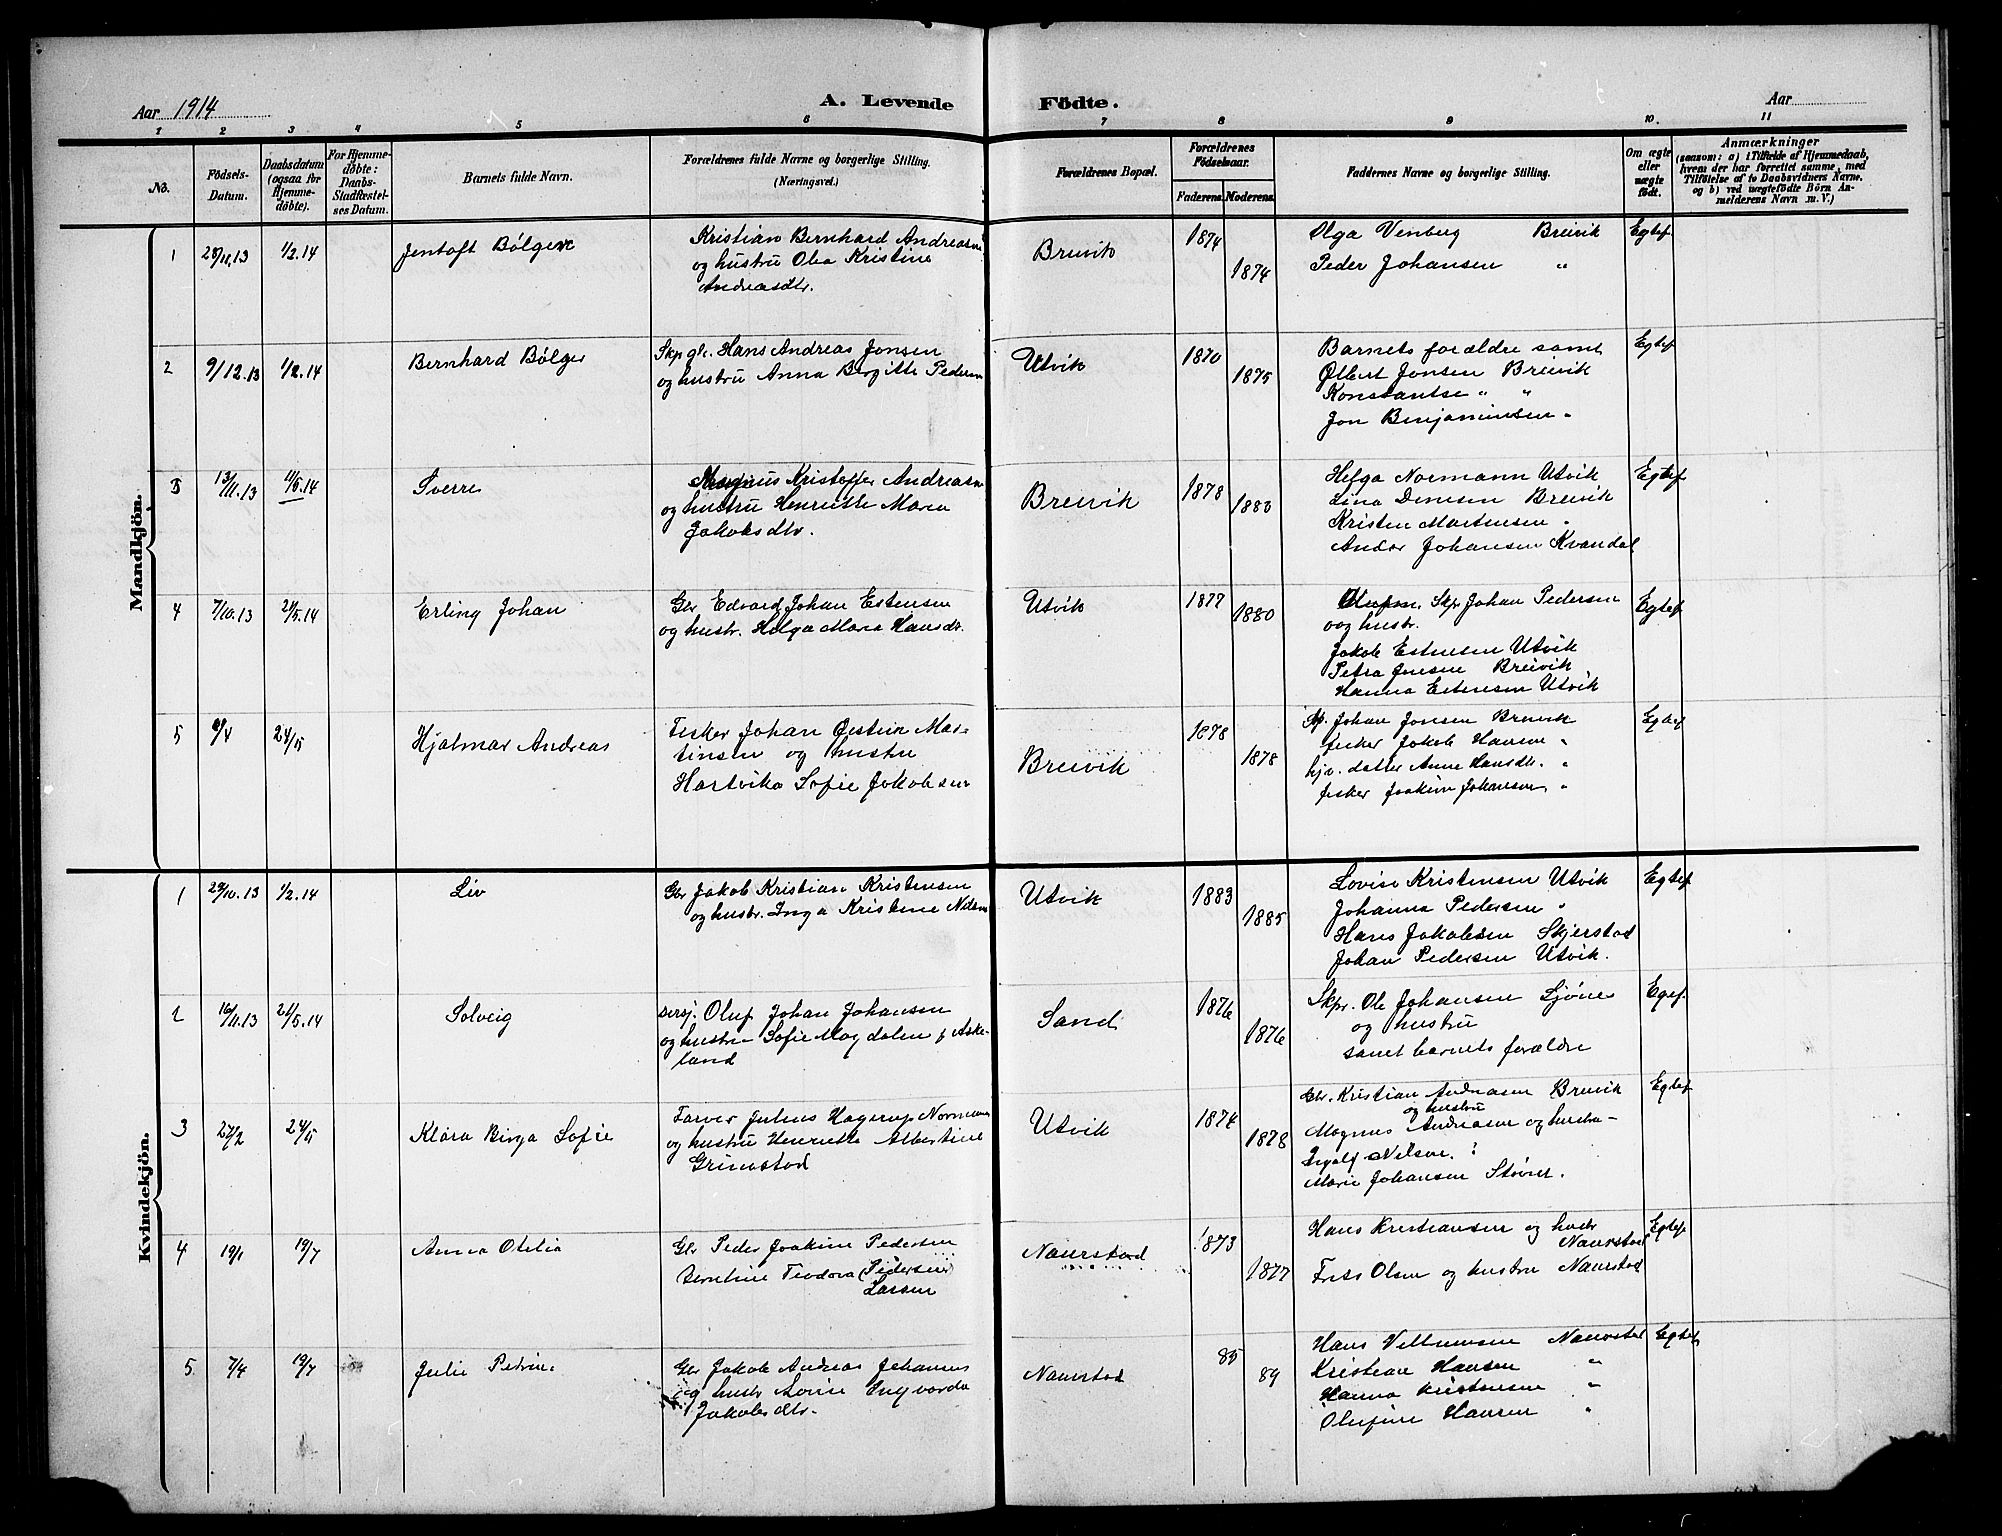 Aar 1914
A. Levende Födte.
Aar
1 2 3 4 5 6 7 8 9 10. 11
No.
Födsels-Datum.
Daabsdatum (ogsaa for Hjemme-døbte).
For Hjemme-døbte: Daabs-Stadfæstel-ses Datum.
Barnets fulde Navn.
Forældrenes fulde Navne og borgerlige Stilling. (Næringsvei.)
Forældrenes Bopæl.
Forældrenes Födselsaar.
Faderens. Moderens.
Faddernes Navne og borgerlige Stilling.
Om ægte eller uægte födt.
Anmærkninger
(saasom: a) i Tilfælde af Hjemmedaab, hvem der har forrettet samme, med Tilföielse af to Daabsvidners Navne. og b) ved uægtefödte Börn An-melderens Navn m. V.)
Mandkjön.
1 28/11.13 1/2.14 Jentoft Bølger
Kristian Bernhard Andreasen
og hustru Olea Kristine
Andreasdtr.
Breivik 1874 1874
Olga Venberg Breivik
Peder Johansen "
Egtef
2 9/12.13 1/2.14 Bernhard Bølger
Skp gl. Hans Andreas Jonsen
og hustru Anna Birgitte Pedersen
Utvik 1870 1875
Barnets forældre samt
Olbert Jonsen Breivik
Konstantse " "
Jon Benjaminsen "
Egtef
3 13/11.13 11/6.14 Sverre
Magnus Kristoffer Andreasen
og hustru Henriette Maria
Jakobsdtr.
Breivik 1878 1880
Helga Normann Utvik
Lina Denesen Breivik
Kristen Martensen "
Andor Johansen Kvandal
Egtef
4 7/10.13 21/5.14 Erling Johan
Gbr Edvard Johan Estensen
og hustr. Helga Maria Hansdr.
Utvik 1877 1880
Skp Johan Pedersen
og hustr.
Jakob Estensen Utvik
Petra Jensen Breivik
Hanna Estensen Utvik
Egtef
5 9/4 24/5 Hjalmar Andreas
Fisker Johan Øistein Mar-
tinsen og hustru
Hartvika Sofie Jakobsen
Breivik 1878 1878
Johan Jonsen Breivik
fisker Jakob Hansen "
hjv. datter Anne Hansdtr. "
fisker Joakim Johansen "
Egtef
Kvindekjön.
1 29/10.13 1/2.14 Liv
Gbr Jakob Kristian Kristensen
og hustr. Inga Kristine Nilsen
Utvik 1883 1885
Lovise Kristensen Utvik
Johanna Pedersen "
Hans Jakobsen Skjerstad
Johan Pedersen Utvik.
Egtef
2 16/11.13 21/5.14 Solveig
Oluf Johan Johansen
og hustru Sofie Magdalena f. Aske-
land
Sand 1876 1876
Skpr. Ole Johansen Ljønes
og hustru
samt barnets forældre
Egtef.
3 27/2 24/5 Klara Birga Sofie
Farver Julius Hagerup Normann
og hustru Henriette Albertine
Grimstad
Utvik 1874 1878
Gbr. Kristian Andreasen Breivik
og hustru
Magnus Andreasen og hustru
Ingolf Nilsen. "
Marie Johansen Støver.
Egtef
4 19/1 19/7 Anna Otelia
Gbr Peder Joakim Pedersen
Berntine Teodora (Pedersen)
Larsen
Naurstad 1873 1877
Hans Kristiansen og hustr
Naurstad
Frits Olsen og hustru Naurstad
Egtef
5 7/4 19/7 Julie Petrine
Gbr Jakob Andreas Johansen
og hustr Lovise Ingvarda
Jakobsdtr.
Naurstad 85 89
Hans Vellumsen Naurstad
Kristian Hansen "
Hanna Kristensen "
Olufine Hansen "
Egtef